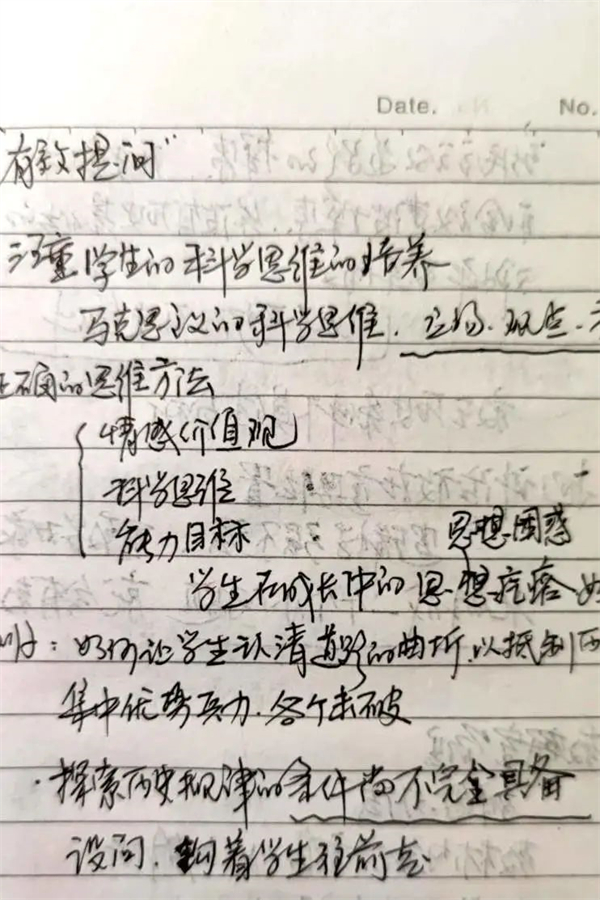 Date. No.
有效提问"
注重学生的科学思维的培养
马克思主义的科学思维. 立场. 观点.
正确的思维方法
情感价值观
科学思维
能力目标
思想困惑
学生在成长中的思想疙瘩
如何让学生认清道路的曲折.以抵制
集中优势兵力.各个击破
·探索历史规律的条件尚不完全具备
设问. 领着学生往前走